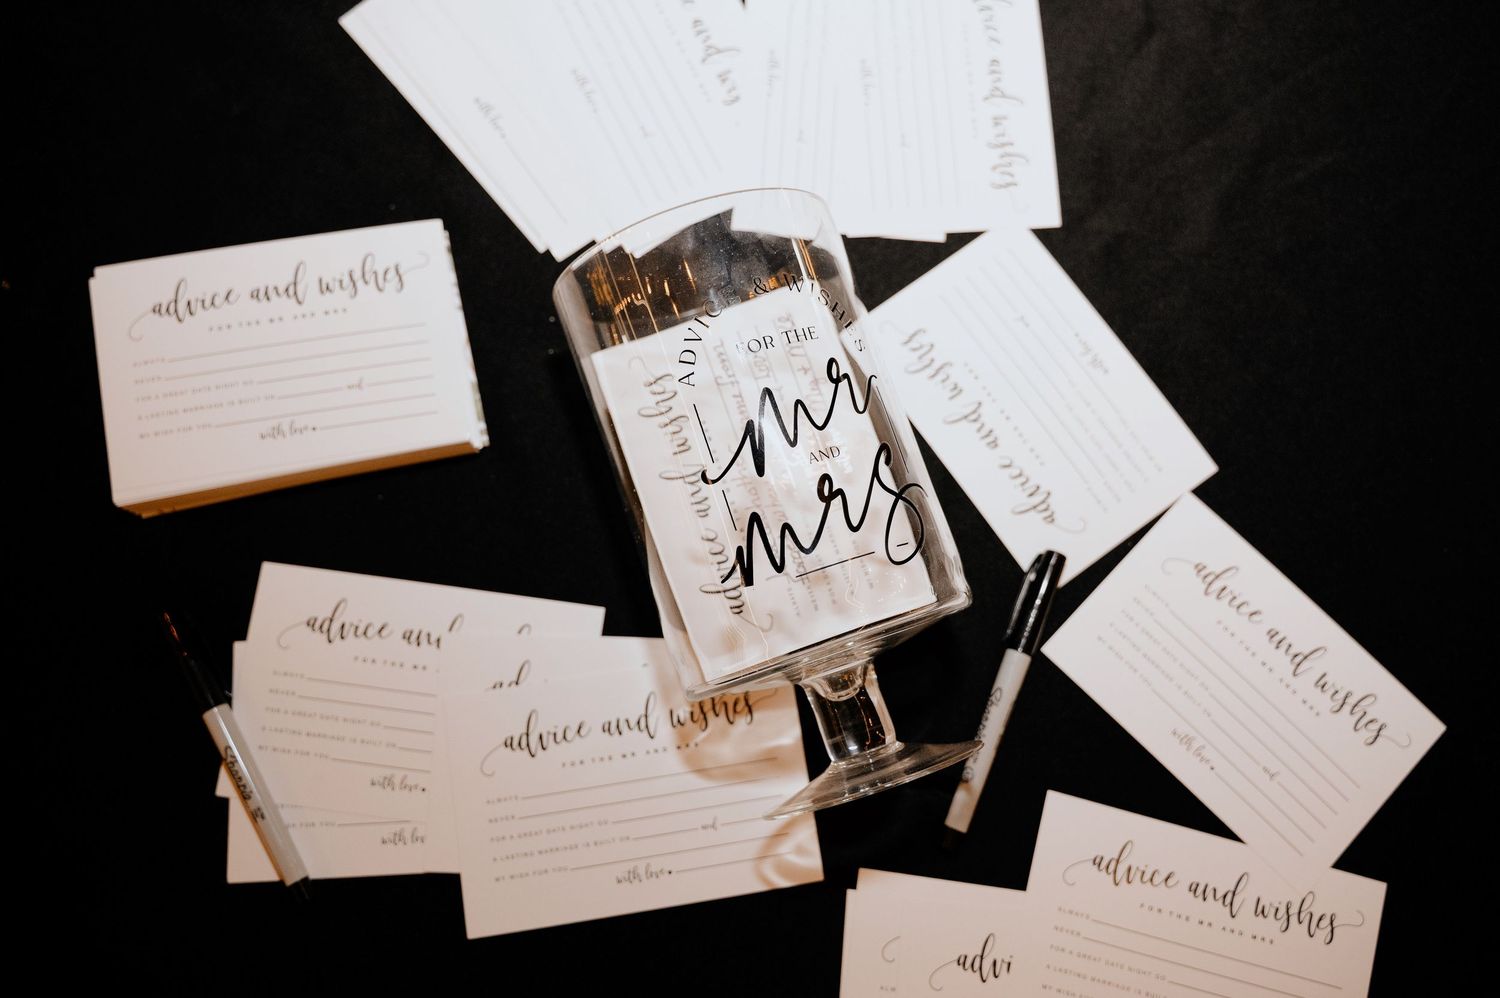 with love,
and
advice and wi
with love,
and
advice and wishes
advice and wishes
FOR THE MR AND MRS
ALWAYS
NEVER
FOR A GREAT DATE NIGHT GO
A LASTING MARRIAGE IS BUILT ON and
MY WISH FOR YOU
with love,
ADVICE & WISHES
FOR THE
mr
AND
mrs
advice and wishes
advice and wishes
with love,
advice and wishes
FOR THE MR AND MRS
ALWAYS
NEVER
FOR A GREAT DATE NIGHT GO
A LASTING MARRIAGE IS BUILT ON and
MY WISH FOR YOU
with love,
advice and
FOR THE MR
ALWAYS
NEVER
FOR A GREAT DATE NIGHT GO
A LASTING MARRIAGE IS BUILT ON
MY WISH FOR YOU
with love,
FOR YOU
with love,
ad
advice and wishes
FOR THE MR AND MRS
ALWAYS
NEVER
FOR A GREAT DATE NIGHT GO
A LASTING MARRIAGE IS BUILT ON and
MY WISH FOR YOU
with love,
Sharpie
Sharpie
advi
AL
advice and wishes
FOR THE MR AND MRS
ALWAYS
NEVER
FOR A GREAT DATE NIGHT GO
A LASTING MARRIAGE IS BUILT ON
MY WISH FOR YOU